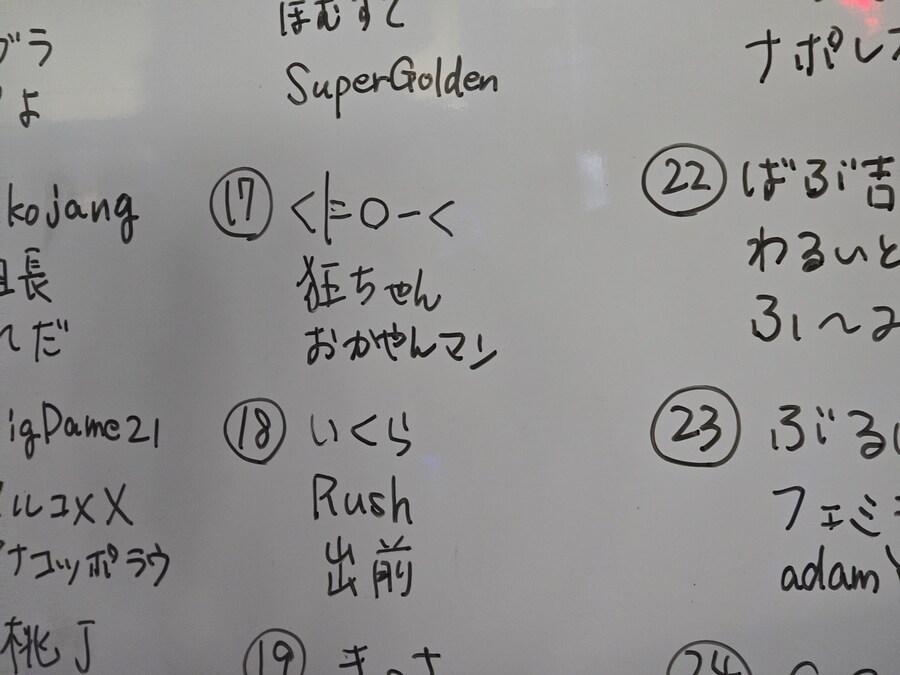 ブラ
よ
kojang
組長
んだ
igDame21
ルコxX
ナコッポラウ
桃J
ほむすて
SuperGolden
⑰
狂ちゃん
おかやんマン
⑱ いくら
Rush
出前
⑲
ナポレ
㉒ ばぶ吉
わるいと
ふぃ〜み
㉓ ぶる
フェミ
adam
㉔